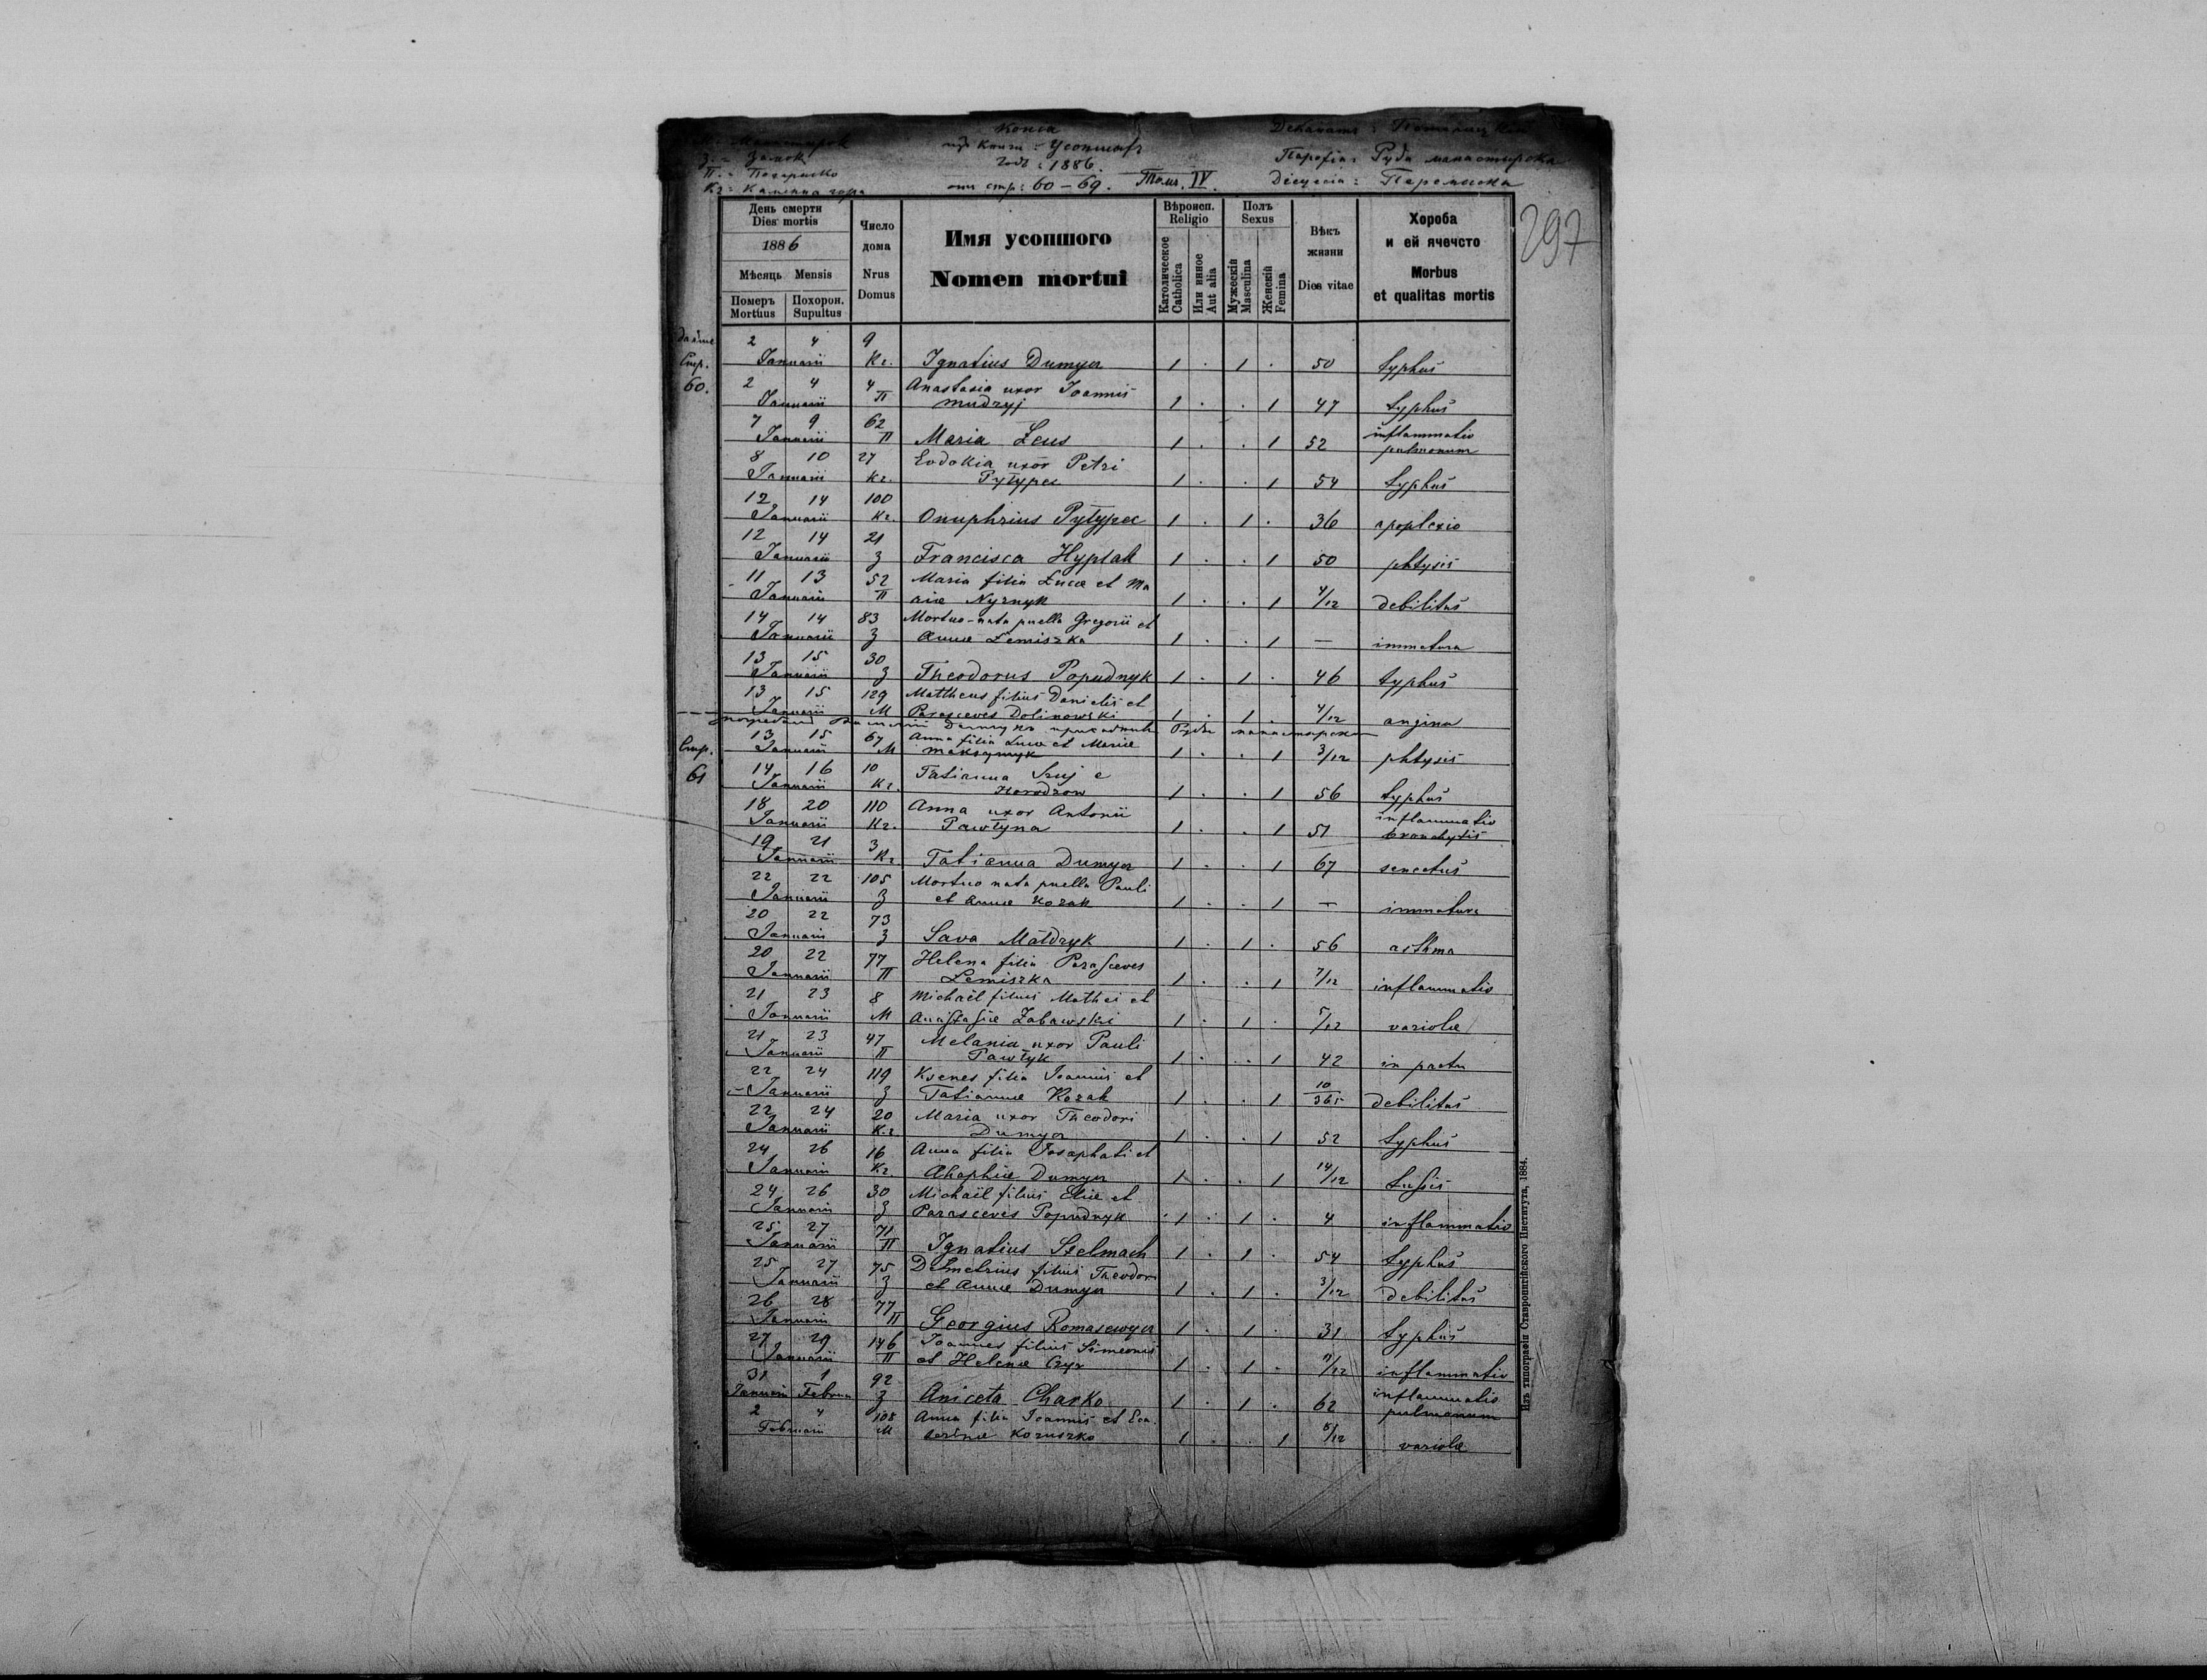 Копія
изъ книги: Усопшихъ
Годъ: 1886.
отъ стр: 60 – 69. Томъ. IV.
М: Манастирок
З. = Замок
П. = Погариско
Кг = Каменна гора
Деканатъ:
Парохія: Руда манастирска
Діецезія: Перемыска
297
День смерти
Dies mortis
1886
Мѣсяць Mensis
Померъ Похорон.
Mortuus Supultus
Число
дома
Nrus
Domus
Имя усопшого
Nomen mortui
Вѣроисп.
Religio
Католическое
Catholica
Или инное
Aut alia
Полъ
Sexus
Мужескій
Masculina
Женскій
Femina
Вѣкъ
жизни
Dies vitae
Хороба
и ей ячечсто
Morbus
et qualitas mortis
Стр.
60.
2 4 9
Januarii Кг. Ignatius Dumycz 1 . 1 . 50 typhus
2 4 4 Anastasia uxor Joannis
Januarii П Mudryj 1 . . 1 47 typhus
7 9 62 inflammatio
Januarii П Maria Leus 1 . . 1 52 pulmonum
8 10 27 Eudokia uxor Petri
Januarii Кг. Pytypec 1 . . 1 54 typhus
12 14 100
Januarii Кг. Onuphrius Pytypec 1 . 1 . 36 apoplexio
12 14 21
Januarii З Francisca Hyptak 1 . . 1 50 phtysis
11 13 52 Maria filia Lucæ et Ma
Januarii П riæ Nyrnyk 1 . . 1 4/12 debilitas
14 14 83 Mortuo-nata puella Gregorii et
Januarii З Annæ Lemiszka 1 . . 1 — immatura
13 15 30
Januarii З Theodorus Popudnyk 1 . 1 . 46 typhus
13 15 129 Mattheus filius Danielis et
Januarii М Parasceves Dolinowski 1 . 1 . 4/12 angina
Стр.
61
13 15 67 Anna filia Lucæ et Mariæ
Januarii М Maksymyk 1 . . 1 3/12 phtysis
14 16 10 Tatianna Szuj e
Januarii Кг. Horodzow 1 . . 1 56 typhus
18 20 110 Anna uxor Antonii inflammatio
Januarii Кг. Pawłyna 1 . . 1 51 bronchytis
19 21 3
Januarii Кг Tatianna Dumycz 1 . . 1 67 senectus
22 22 105 Mortuo nata puella Pauli
Januarii З et Annæ Kozak 1 . . 1 — immatura
20 22 73
Januarii З Sava Małdryk 1 . 1 . 56 asthma
20 22 77 Helena filia Parasceves
Januarii П Lemiszka 1 . . 1 7/12 inflammatio
21 23 8 Michaël filius Mathei et
Januarii М Anastasiæ Zabawski 1 . 1 . 5/12 variolæ
21 23 47 Melania uxor Pauli
Januarii П Pawłyk 1 . . 1 42 in partu
22 24 119 Ksenes filia Joannis et
Januarii З Tatiannæ Kozak 1 . . 1 10/365 debilitas
22 24 20 Maria uxor Theodori
Januarii Кг Dumycz 1 . . 1 52 typhus
24 26 16 Anna filia Josaphati et
Januarii Кг Ahaphiæ Dumycz 1 . . 1 14/12 tussis
24 26 30 Michaël filius Eliæ et
Januarii З Parasceves Popudnyk 1 . 1 . 4 inflammatio
25 27 71
Januarii П Ignatius Stelmach 1 . 1 . 54 typhus
25 27 75 Demetrius filius Theodori
Januarii З et Annæ Dumycz 1 . 1 . 3/12 debilitas
26 28 77
Januarii П Georgius Romasewycz 1 . 1 . 31 typhus
27 29 146 Joannes filius Simeonis
Januarii П et Helenæ Czyr 1 . 1 . inflammatio
31 1 92 inflammatio
Januarii Februa З Aniceta Charko 1 . 1 . 62 pulmonum
2 4 108 Anna filia Joannis et Eca
Februarii М terinæ Koruszko 1 . . 1 variolæ
Изъ типографіи Ставропигійского Института, 1884.